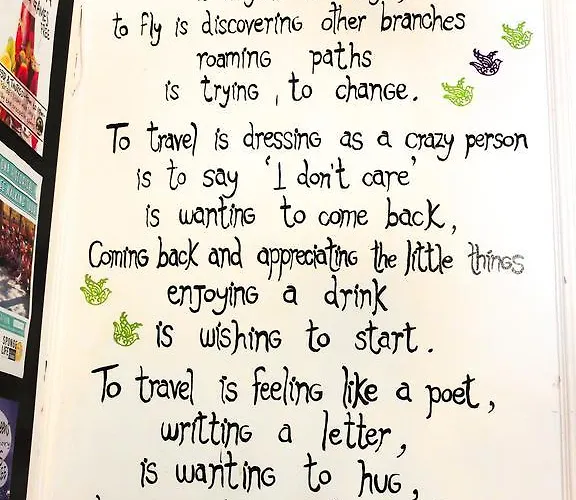 to fly is discovering other branches
roaming paths
is trying, to change.
To travel is dressing as a crazy person
is to say 'I don't care'
is wanting to come back,
Coming back and appreciating the little things
enjoying a drink
is wishing to start.
To travel is feeling like a poet,
writting a letter,
is wanting to hug,